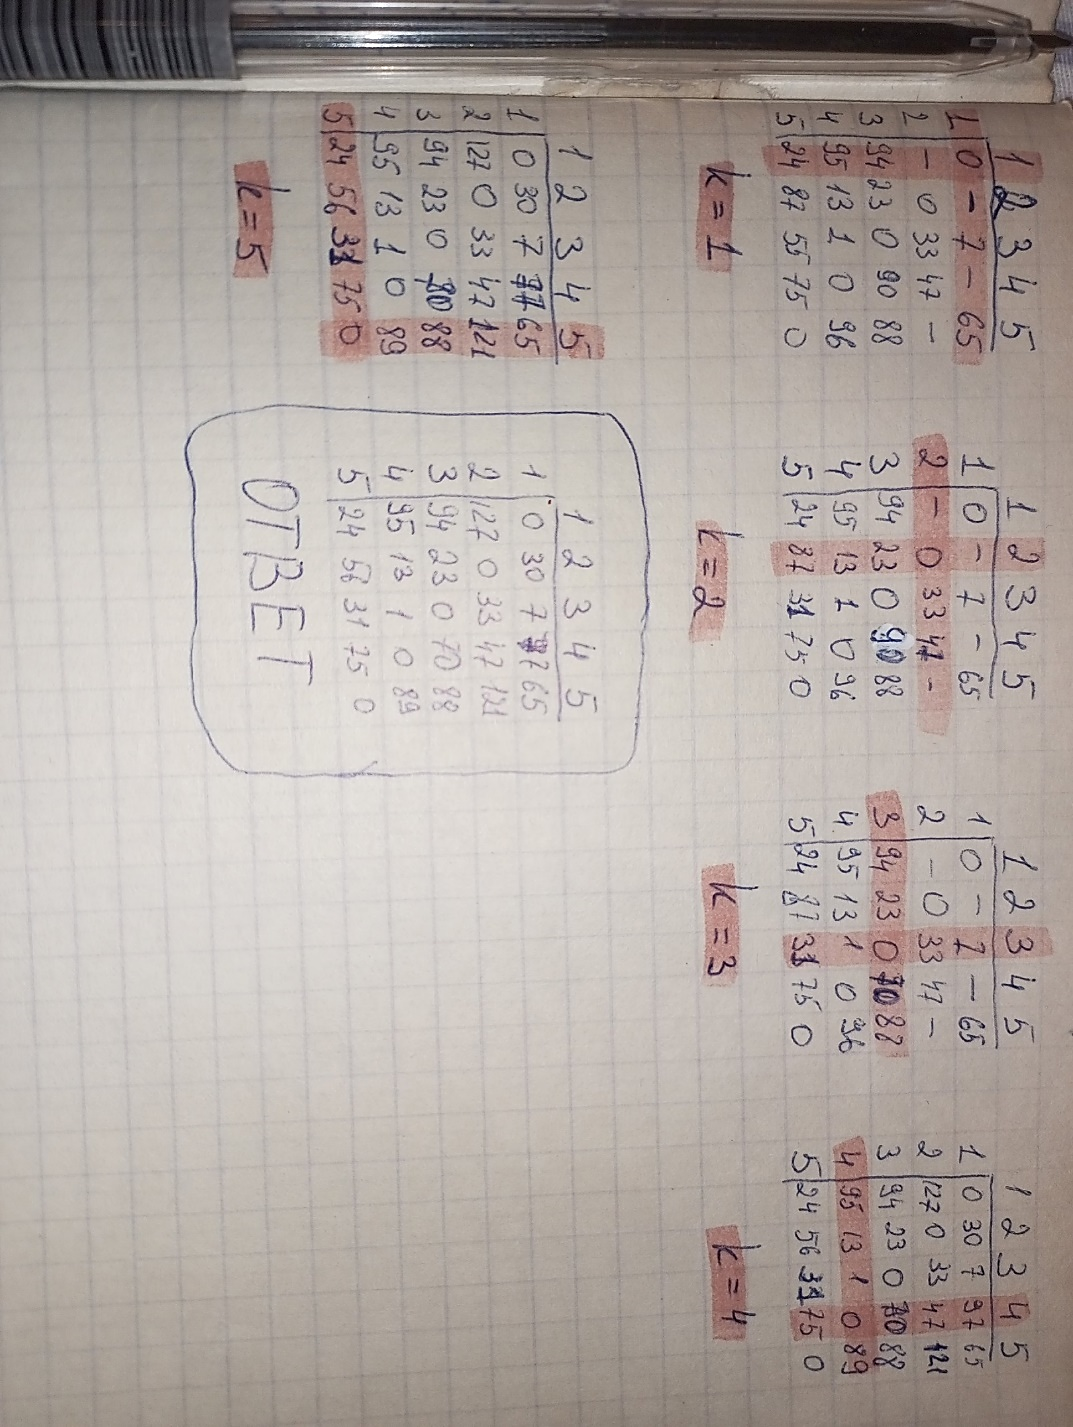 1 2 3 4 5
1 0 - 7 - 65
2 - 0 33 47 -
3 94 23 0 90 88
4 95 13 1 0 96
5 24 87 55 75 0
k=1
1 2 3 4 5
1 0 - 7 - 65
2 - 0 33 47 -
3 94 23 0 90 88
4 95 13 1 0 96
5 24 87 31 75 0
k=2
1 2 3 4 5
1 0 - 7 - 65
2 - 0 33 47 -
3 94 23 0 70 88
4 95 13 1 0 96
5 24 87 31 75 0
k=3
1 2 3 4 5
1 0 30 7 97 65
2 127 0 33 47 121
3 94 23 0 70 88
4 95 13 1 0 89
5 24 56 31 75 0
k=4
1 2 3 4 5
1 0 30 7 77 65
2 127 0 33 47 121
3 94 23 0 70 88
4 95 13 1 0 89
5 24 56 31 75 0
k=5
1 2 3 4 5
1 0 30 7 77 65
2 127 0 33 47 121
3 94 23 0 70 88
4 95 13 1 0 89
5 24 56 31 75 0
ОТВЕТ